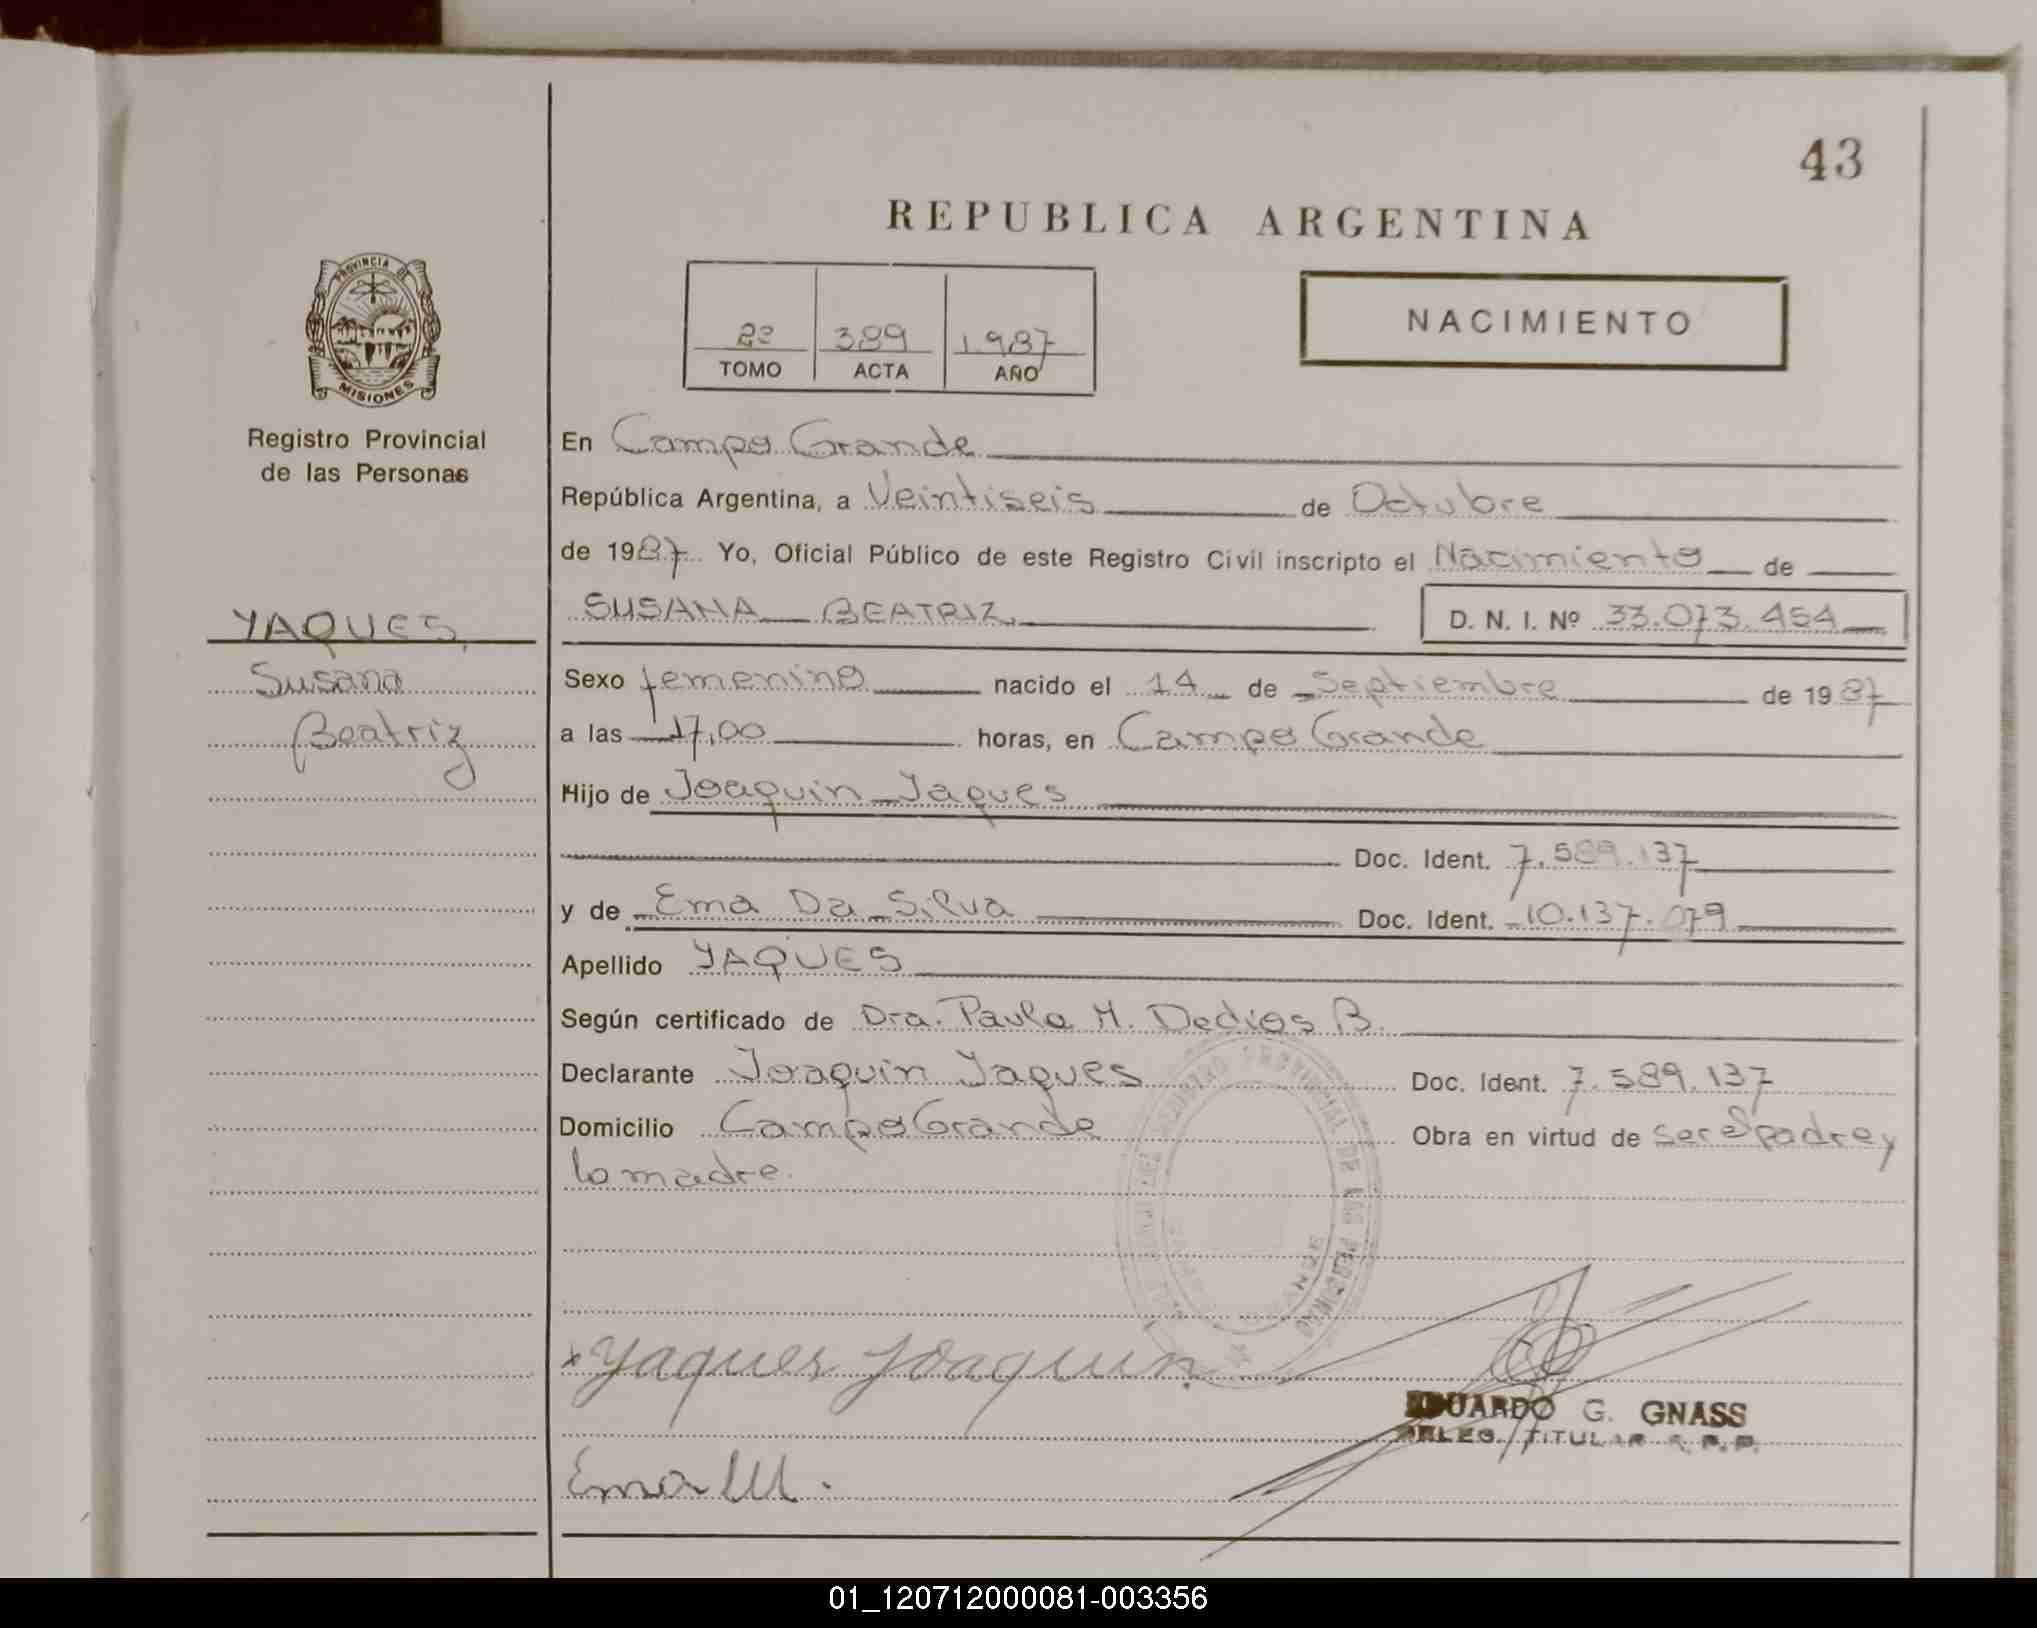 43
REPUBLICA ARGENTINA
PROVINCIA DE
MISIONES
Registro Provincial
de las Personas
2º 389 1.987
TOMO ACTA AÑO
NACIMIENTO
En Campo Grande
República Argentina, a Veintiseis de Octubre
de 1987 Yo, Oficial Público de este Registro Civil inscripto el Nacimiento de
YAQUES,
Susana
Beatriz
SUSANA BEATRIZ.
D. N. I. Nº 33.073.454
Sexo femenino nacido el 14 de Septiembre de 1987
a las 17,00 horas, en Campo Grande
Hijo de Joaquin Yaques
Doc. Ident. 7.589.137
y de Ema Da Silva Doc. Ident. 10.137.079
Apellido YAQUES
Según certificado de Dra. Paula M. Dedios B.
Declarante Joaquin Yaques Doc. Ident. 7.589.137
Domicilio Campo Grande Obra en virtud de ser el padre y
la madre.
PROVINCIAL DE LAS PERSONAS
x Yaques Joaquin.
EDUARDO G. GNASS
DELEG. TITULAR R. P. P.
Ema
01_120712000081-003356